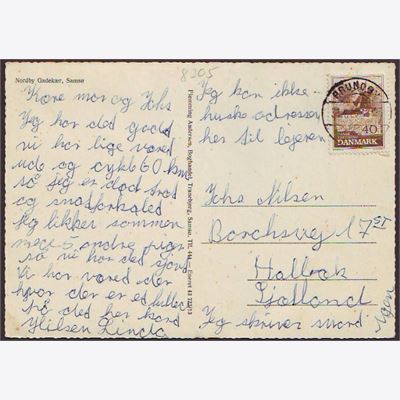 Nordby Gadekær, Samsø
8305
Kære mor og Johs
Jeg har det godt
vi har lige vared
ude og cykle 60 km
så jeg er død træt
og snotforkøled
Jeg likker sammen
med 5 andre piger
så vi har det sjovt
Vi har vared der
hvor der er et billed
på det her kord
Hilsen Linda
Flemming Andersen, Boghandel, Tranebjerg, Samsø. Tlf. 144
Jeg kan ikke
huske adressen
her til lejeren
BRUNDBY
40
DANMARK
Johs Nilsen
Borchsvej 17 ST
Holbæk
Sjælland
Jeg skriver snard
igen